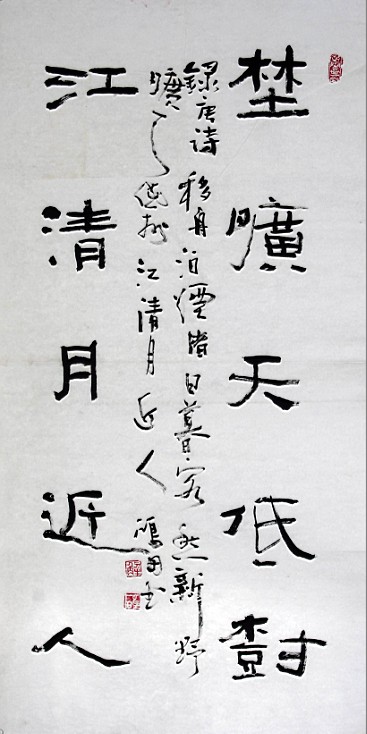 埜曠天低樹
録唐诗移舟泊煙渚日暮客愁新野
曠天低树江清月近人
江清月近人